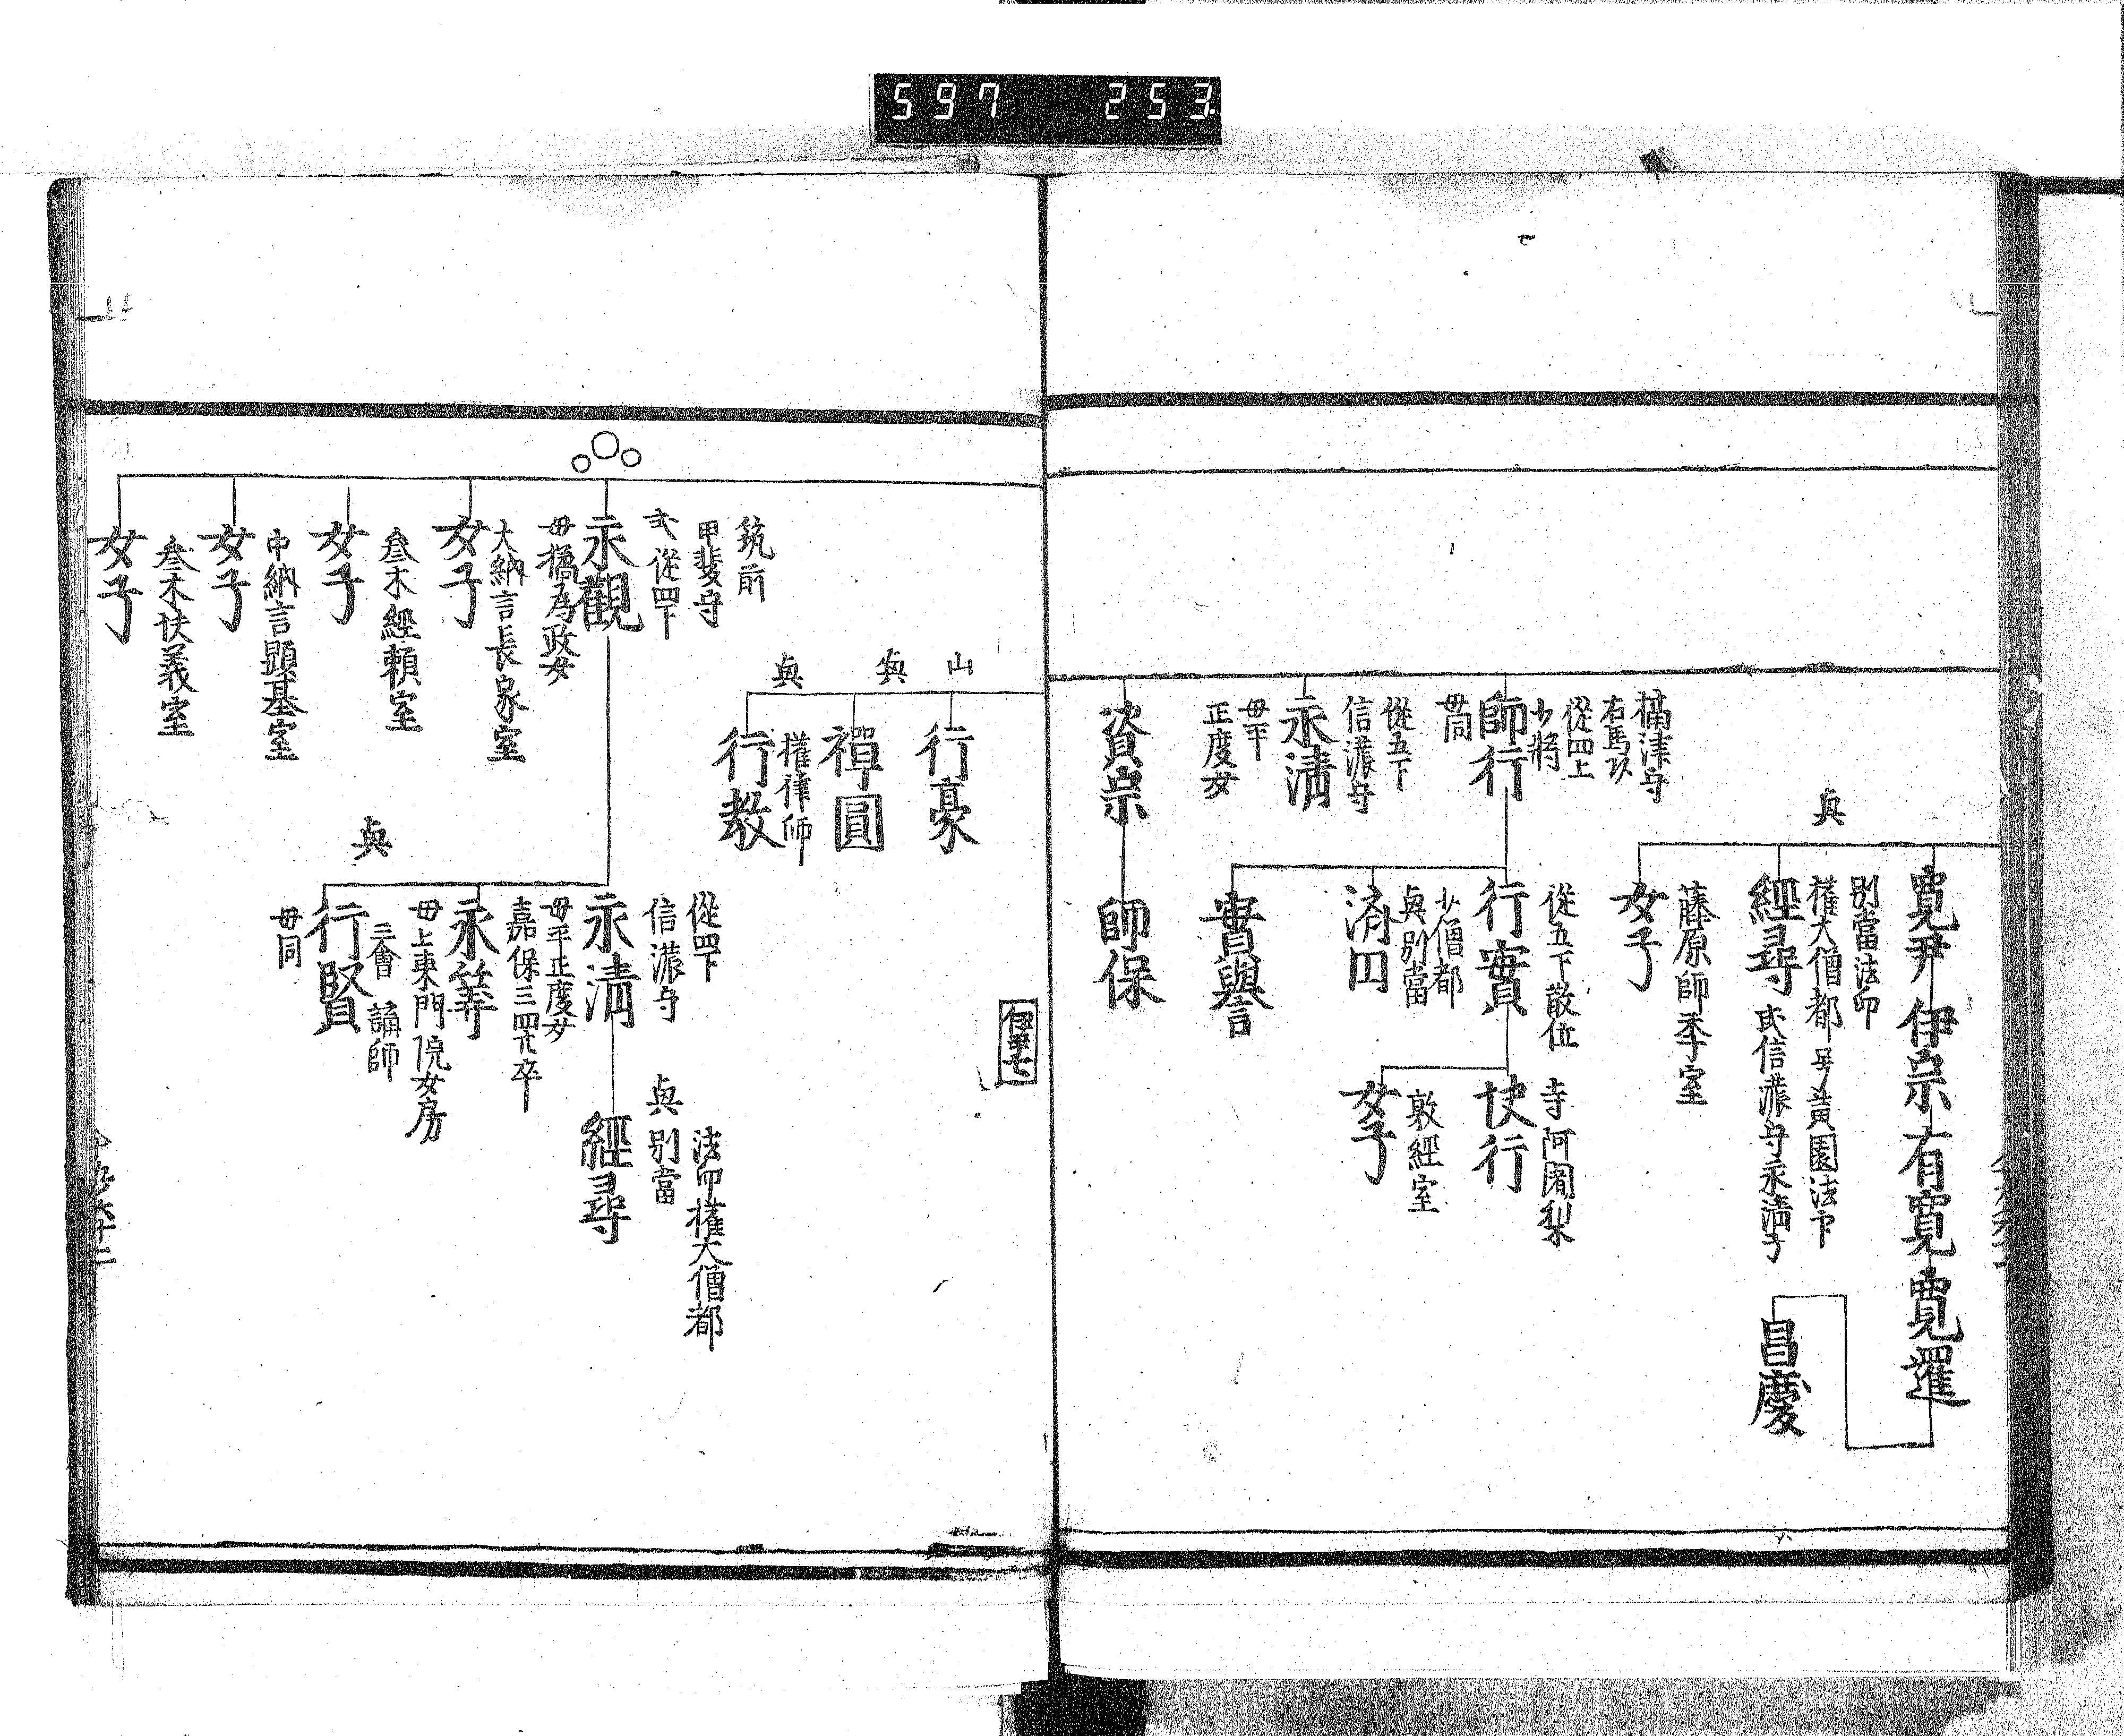 597 253
寛尹
伊宗
有寛
寛暹
別當法印
權大僧都
号黄園法印
經尋
或信濃守永清子
昌慶
與
藤原師季室
女子
攝津守
右馬頭
從四上
少將
師行
母同
從五下散位
行實
寺阿闍梨
快行
敦經室
女子
少僧都
與別當
済円
實譽
從五下
信濃守
永清
母平
正度女
資宗
師保
伊幸七
山
行豪
與
禅圓
權律師
與
行教
筑前
甲斐守
弐從四下
永觀
母橘為政女
從四下
信濃守
永清
母平正度女
法印權大僧都
與別當
經尋
嘉保三四卒
永算
母上東門院女房
三會講師
與
行賢
母同
大納言長家室
女子
叄木經頼室
女子
中納言顕基室
女子
叄木扶義室
女子